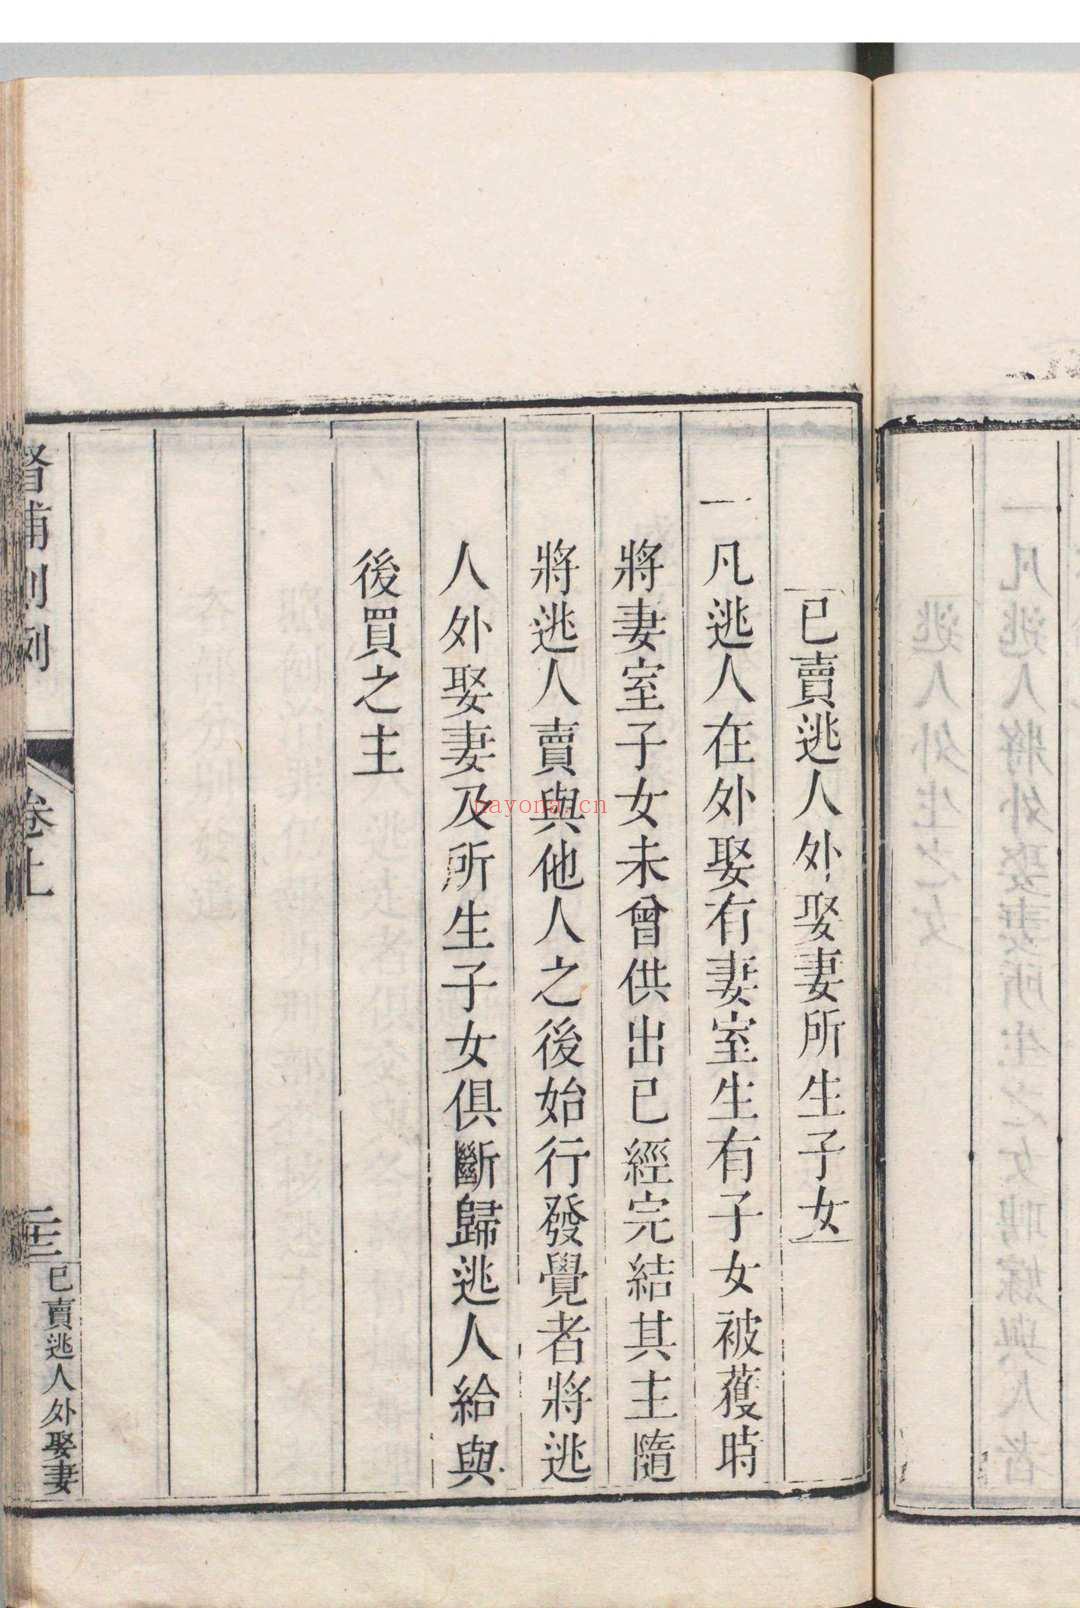 已賣逃人外娶妻所生子女
一凡逃人在外娶有妻室生有子女被獲時
將妻室子女未曾供出已經完結其主隨
將逃人賣與他人之後始行發覺者將逃
人外娶妻及所生子女俱斷歸逃人給與
後買之主
督捕則例
卷上
二十三
已賣逃人外娶妻
nayona.cn